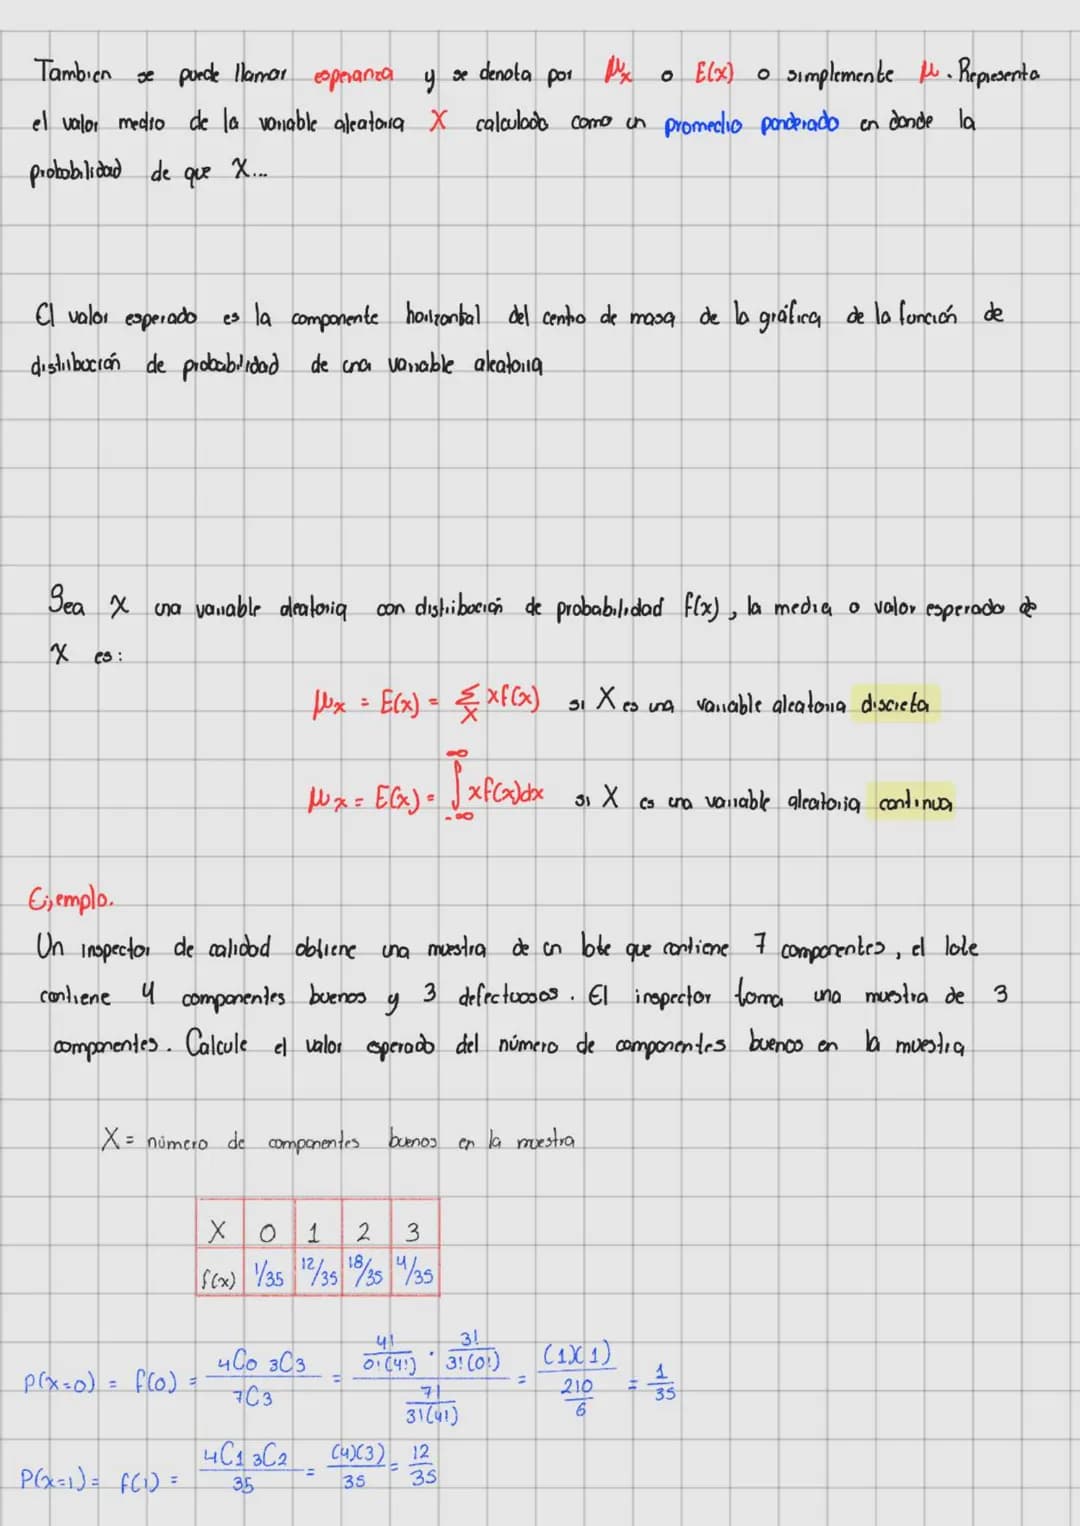 Tambien se puede llamar esperanza y se denota por μx o E(x) o simplemente μ. Representa
el valor medio de la variable aleatoria X calculado como un promedio ponderado en donde la
probabilidad de que X...
El valor esperado es la componente horizontal del centro de masa de la gráfica de la función de
distribución de probabilidad de una variable aleatoria
Sea X una variable aleatoria con distribución de probabilidad f(x), la media o valor esperado de
X es:
μx = E(x) = Σx xf(x) si X es una variable aleatoria discreta
μx = E(x) = ∫-∞^∞ xf(x)dx si X es una variable aleatoria continua
Ejemplo.
Un inspector de calidad obtiene una muestra de un lote que contiene 7 componentes, el lote
contiene 4 componentes buenos y 3 defectuosos. El inspector toma una muestra de 3
componentes. Calcule el valor esperado del número de componentes buenos en la muestra
X = número de componentes buenos en la muestra
X 0 1 2 3
f(x) 1/35 12/35 18/35 4/35
P(x=0) = f(0) = 4C0 3C3 / 7C3 = (4!/0!(4!) · 3!/3!(0!)) / (7!/3!(4!)) = (1)(1) / (210/6) = 1/35
P(x=1) = f(1) = 4C1 3C2 / 35 = (4)(3)/35 = 12/35